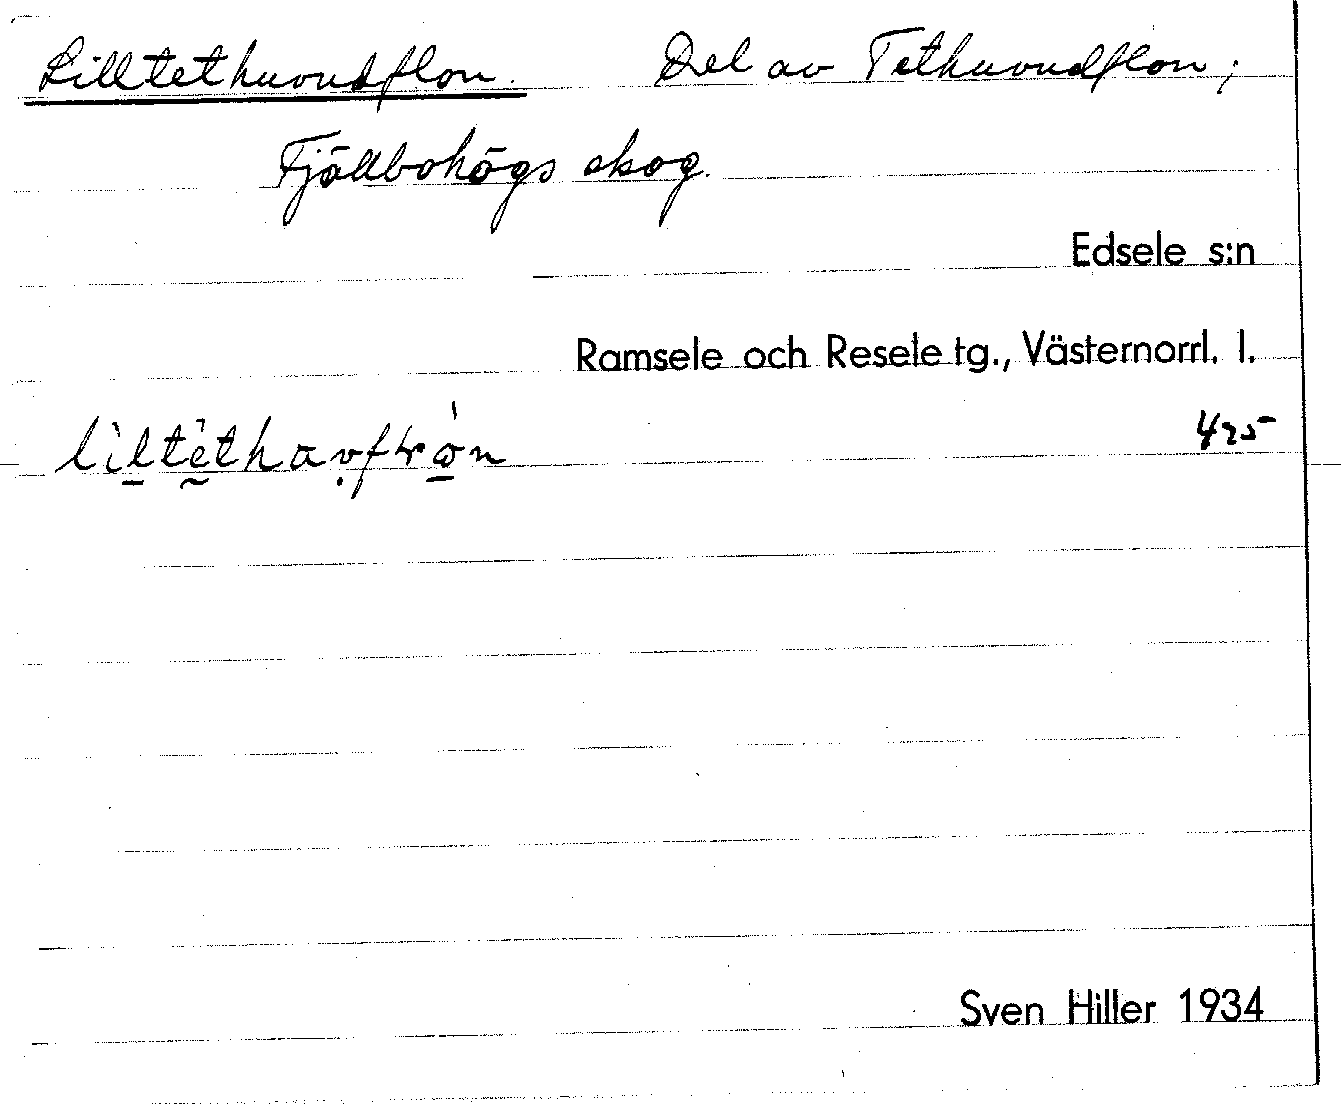 Lilltethuvudflon. Del av Tethuvudflon;
Fjällbohögs skog.
Edsele s:n
Ramsele och Resele tg., Västernorrl. l.
425
Sven Hiller 1934